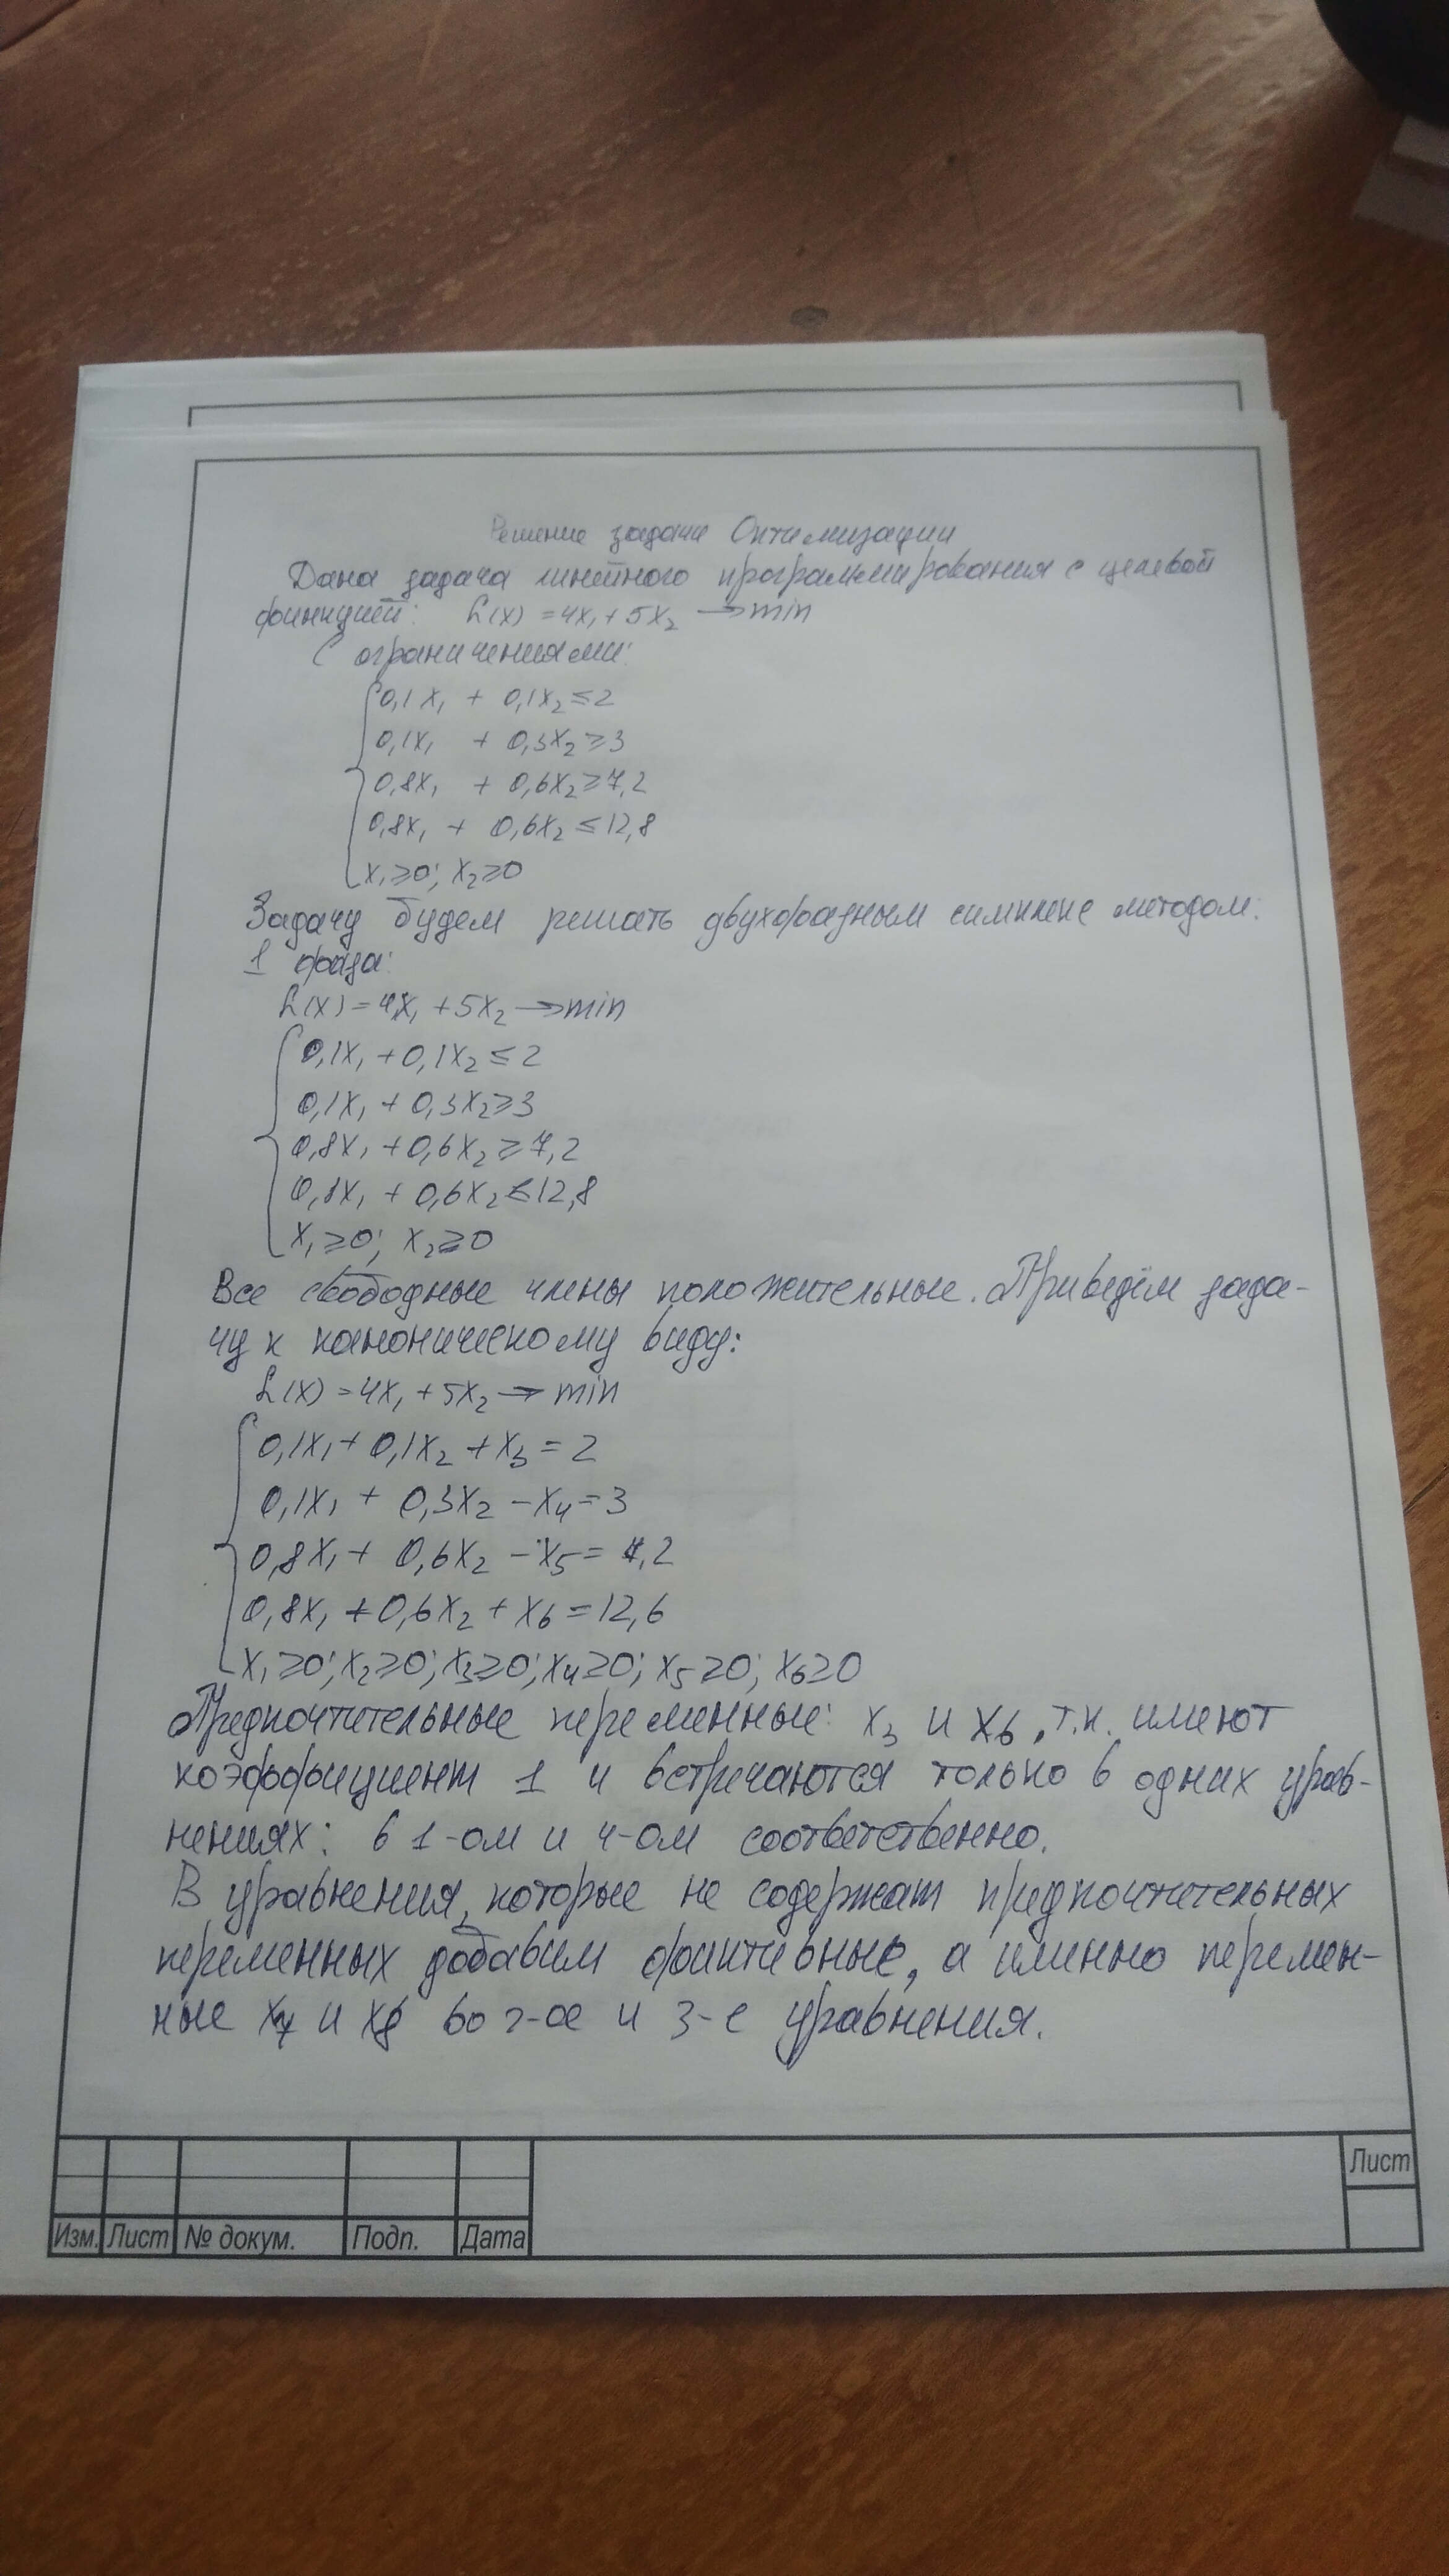 Решение задачи Оптимизации
Дана задача линейного программирования с целевой
функцией: L(x) = 4x₁ + 5x₂ → min
С ограничениями:
0,1x₁ + 0,1x₂ ≤ 2
0,1x₁ + 0,3x₂ ≥ 3
0,8x₁ + 0,6x₂ ≥ 7,2
0,8x₁ + 0,6x₂ ≤ 12,8
x₁ ≥ 0; x₂ ≥ 0
Задачу будем решать двухфазным симплекс методом:
1 фаза:
L(x) = 4x₁ + 5x₂ → min
0,1x₁ + 0,1x₂ ≤ 2
0,1x₁ + 0,3x₂ ≥ 3
0,8x₁ + 0,6x₂ ≥ 7,2
0,8x₁ + 0,6x₂ ≤ 12,8
x₁ ≥ 0; x₂ ≥ 0
Все свободные члены положительные. Приведём зада-
чу к каноническому виду:
L(x) = 4x₁ + 5x₂ → min
0,1x₁ + 0,1x₂ + x₃ = 2
0,1x₁ + 0,3x₂ - x₄ = 3
0,8x₁ + 0,6x₂ - x₅ = 7,2
0,8x₁ + 0,6x₂ + x₆ = 12,6
x₁ ≥ 0; x₂ ≥ 0; x₃ ≥ 0; x₄ ≥ 0; x₅ ≥ 0; x₆ ≥ 0
Предпочтительные переменные: x₃ и x₆, т.к. имеют
коэффициент 1 и встречаются только в одних урав-
нениях: в 1-ом и 4-ом соответственно.
В уравнения, которые не содержат предпочтительных
переменных добавим фиктивные, а именно перемен-
ные x₇ и x₈ во 2-ое и 3-е уравнения.
Лист
Изм. Лист № докум. Подп. Дата